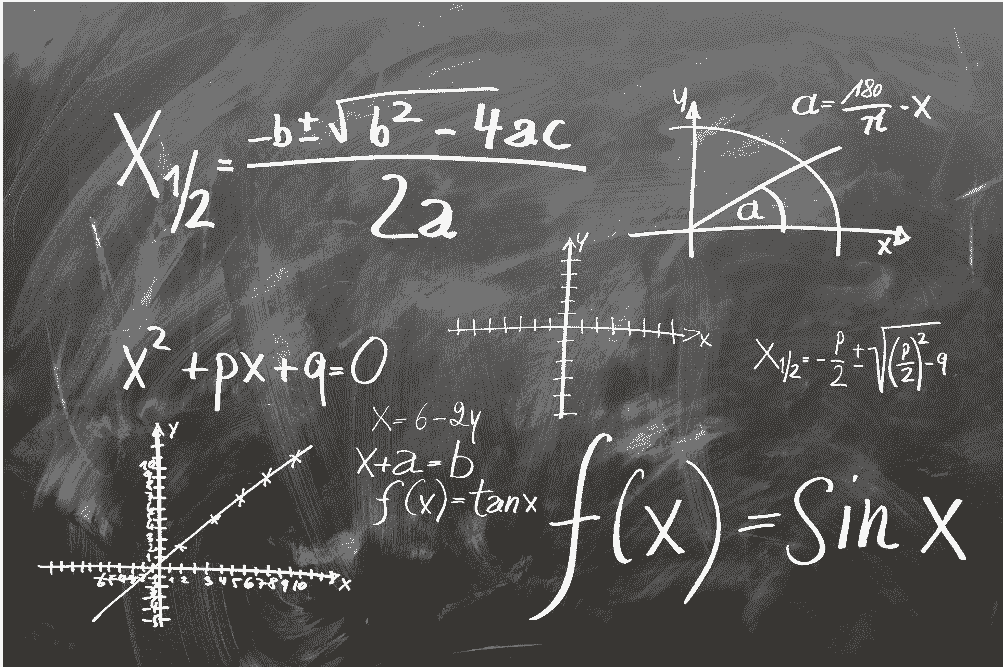 X1/2 = -b ± √b² - 4ac / 2a
y
a = 180/π · x
a
x
y
x
x² + px + q = 0
X1/2 = -p/2 ± √(p/2)² - q
x = 6 - 2y
x + a = b
f(x) = tan x
f(x) = sin x
y
10
1 2 3 4 5 6 7 8 9 10
x